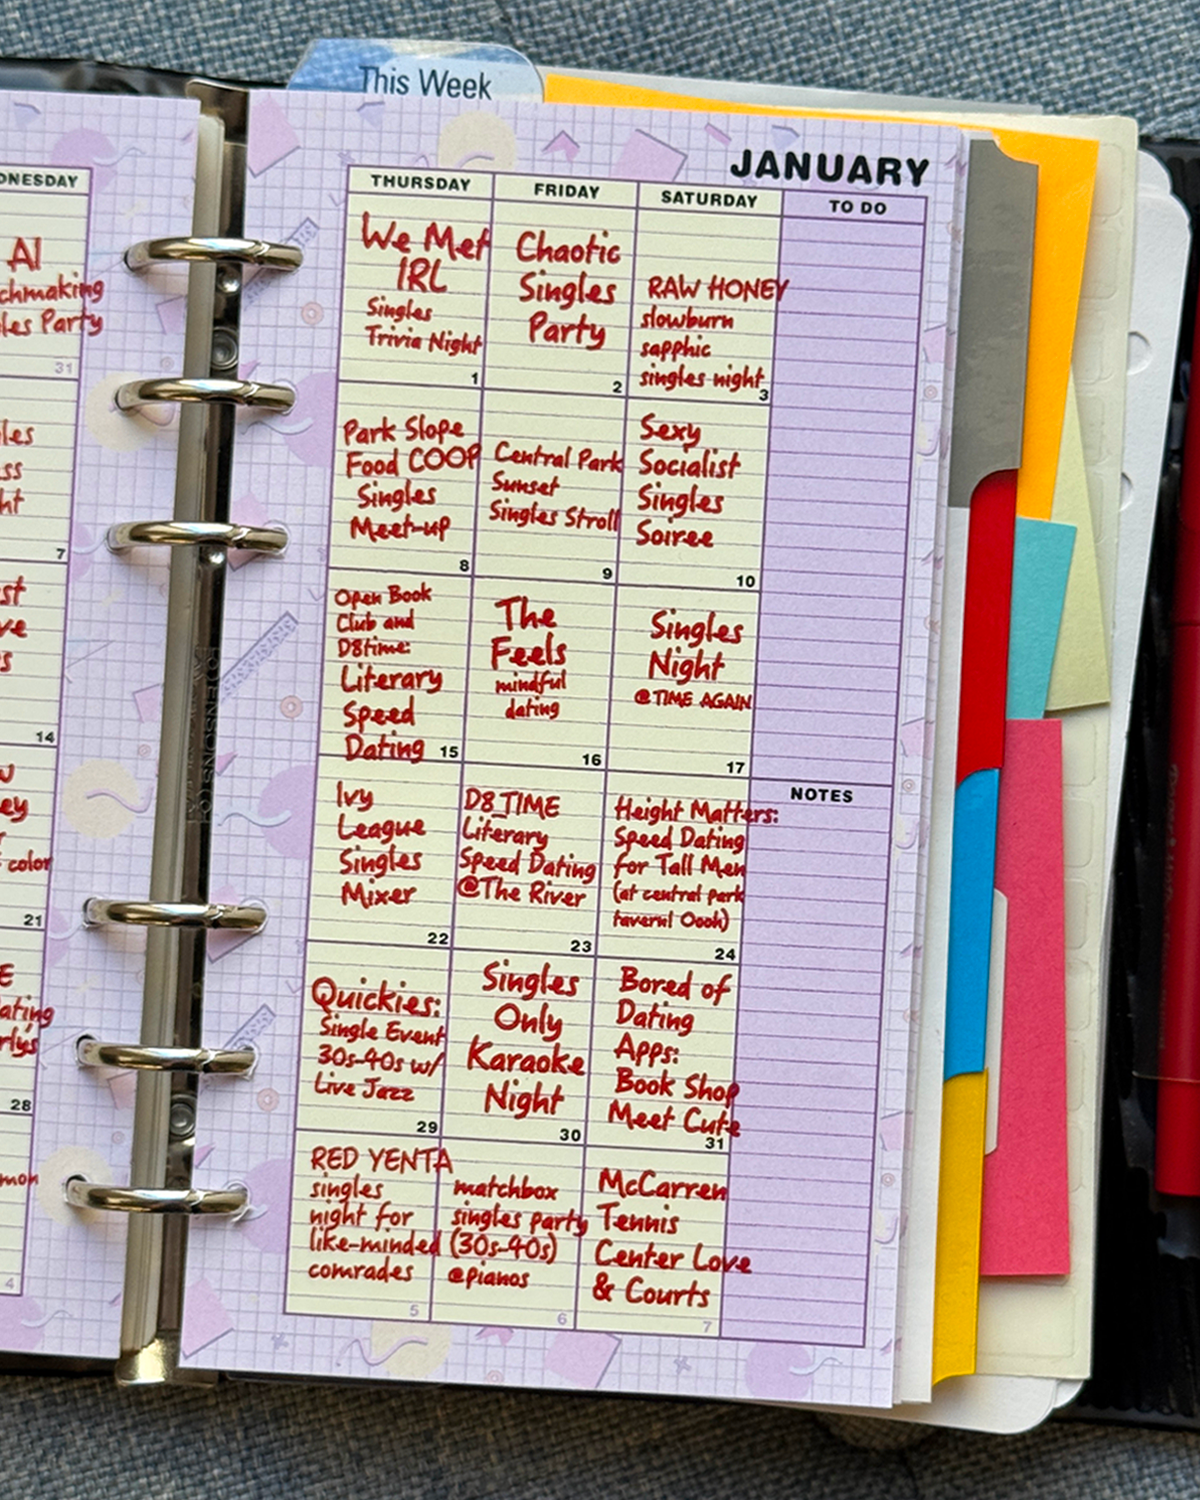 This Week
JANUARY
ONESDAY
AI
chmaking
les Party
31
les
ss
ht
7
st
ve
s
14
ey
color
21
E
ating
rlys
28
mon
4
THURSDAY
FRIDAY
SATURDAY
TO DO
We Met
IRL
Singles
Trivia Night
1
Chaotic
Singles
Party
2
RAW HONEY
slowburn
sapphic
singles night
3
Park Slope
Food COOP
Singles
Meet-up
8
Central Park
Sunset
Singles Stroll
9
Sexy
Socialist
Singles
Soiree
10
Open Book
Club and
D8time:
Literary
Speed
Dating
15
The
Feels
mindful
dating
16
Singles
Night
@TIME AGAIN
17
NOTES
Ivy
League
Singles
Mixer
22
D8_TIME
Literary
Speed Dating
@The River
23
Height Matters:
Speed Dating
for Tall Men
(at central park
tavern! Oooh)
24
Quickies:
Single Event
30s-40s w/
Live Jazz
29
Singles
Only
Karaoke
Night
30
Bored of
Dating
Apps:
Book Shop
Meet Cute
31
RED YENTA
singles
night for
like-minded
comrades
5
matchbox
singles party
(30s-40s)
@pianos
6
McCarren
Tennis
Center Love
& Courts
7